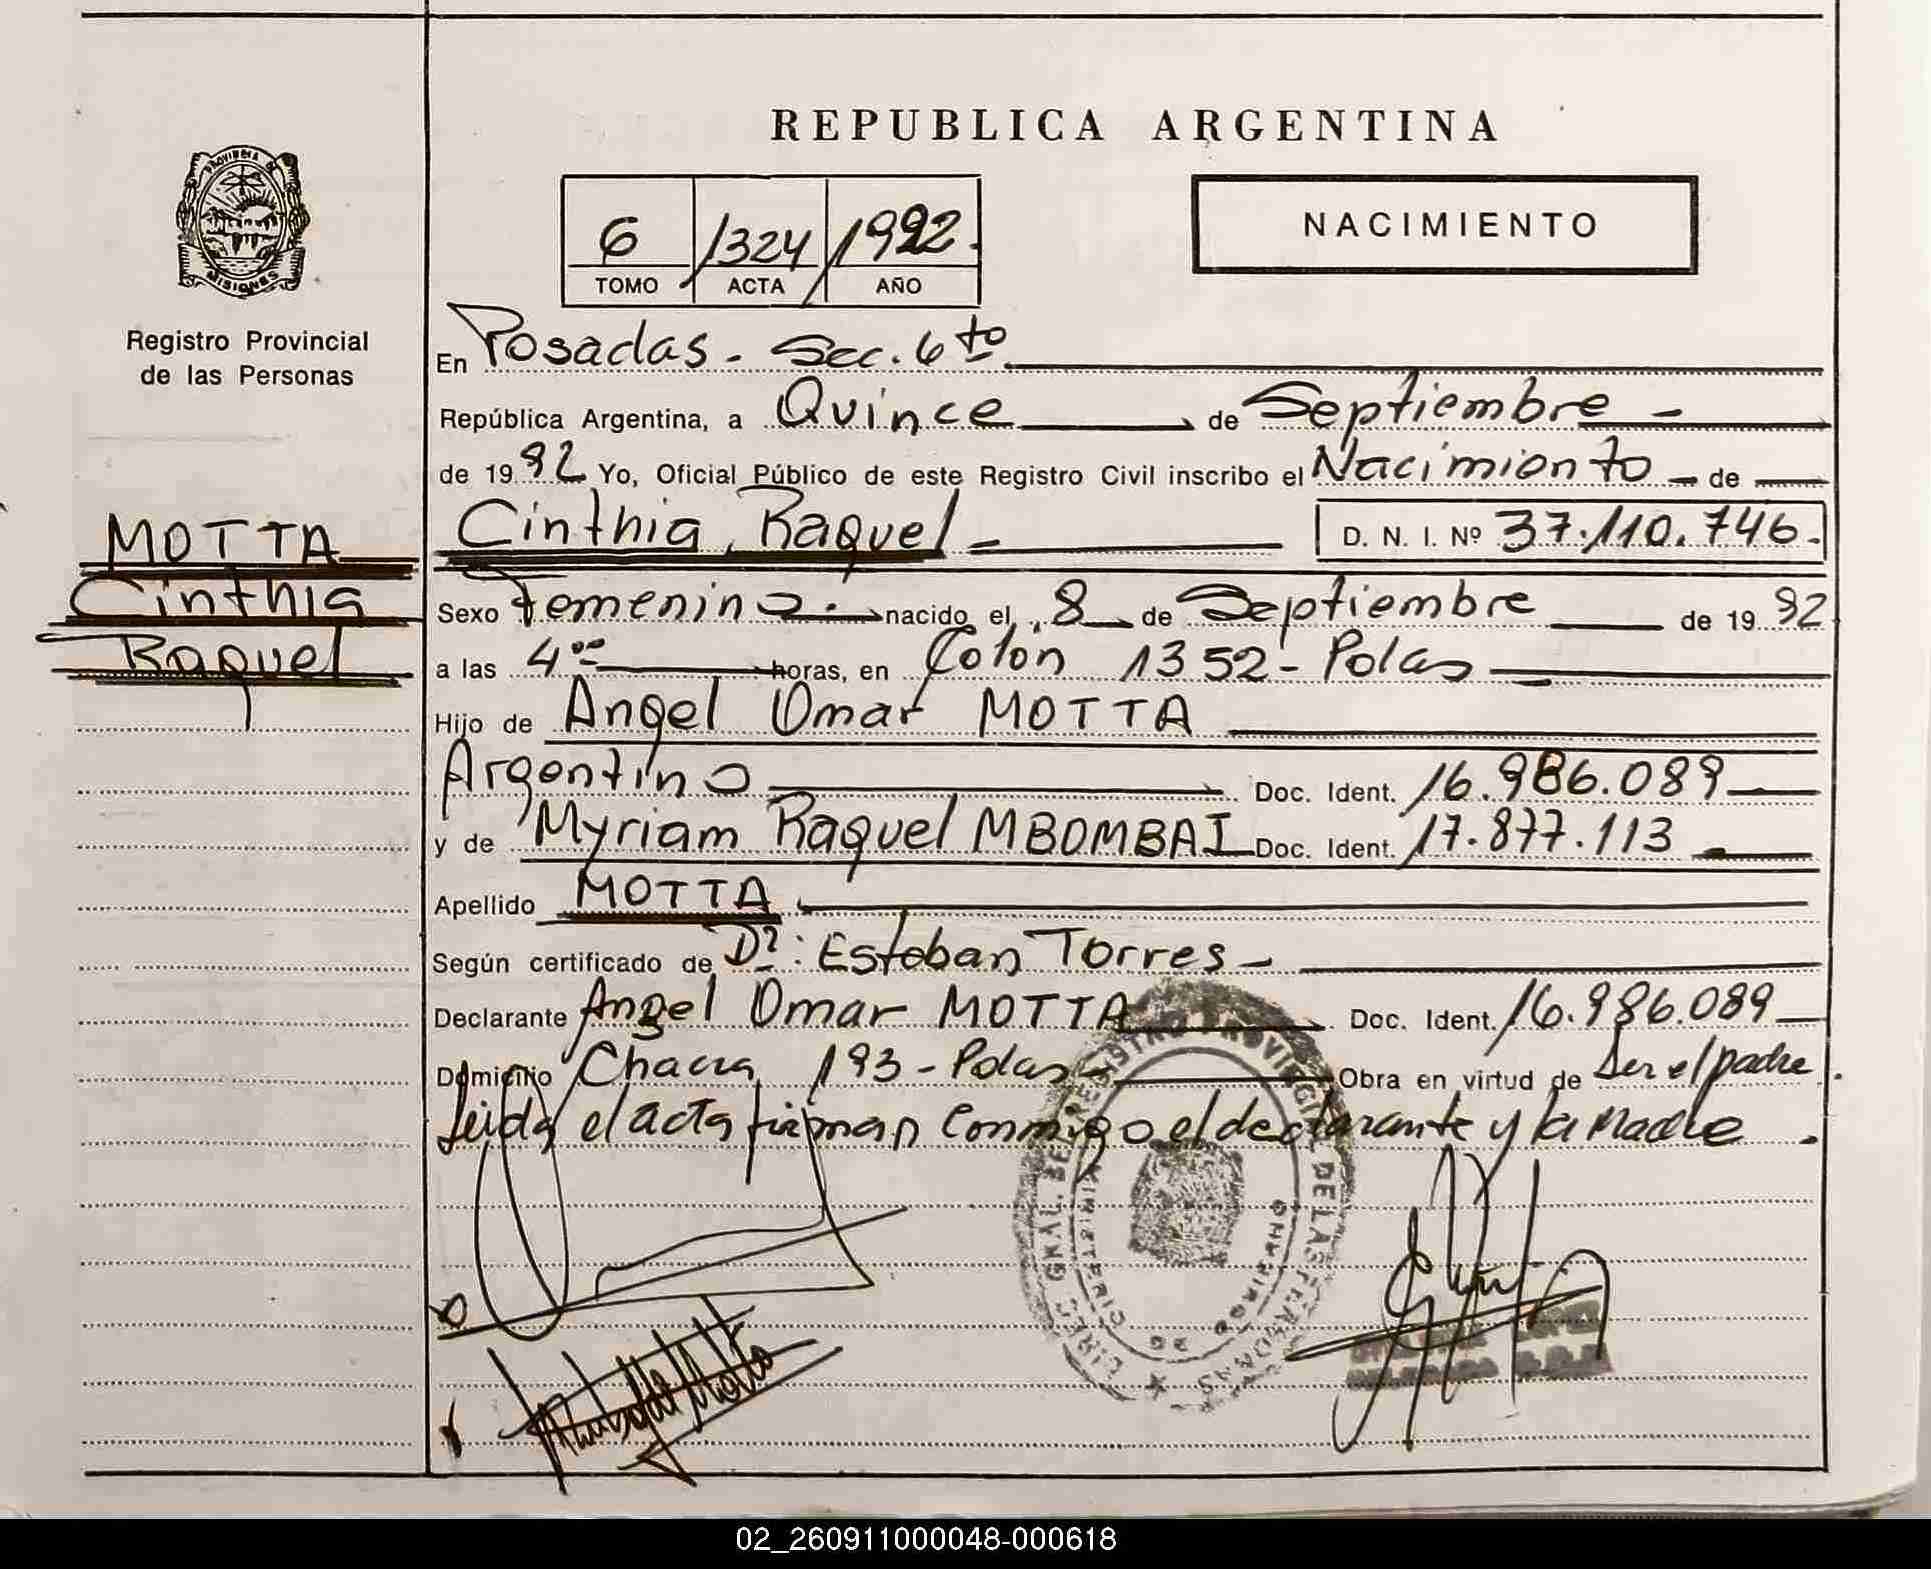 REPUBLICA ARGENTINA
PROVINCIA DE MISIONES
Registro Provincial
de las Personas
6 /1324 /1992.
TOMO ACTA AÑO
NACIMIENTO
En Posadas - Sec. 6to
República Argentina, a Quince de Septiembre -
de 1992 Yo, Oficial Público de este Registro Civil inscribo el Nacimiento - de
MOTTA
Cinthia
Raquel
Cinthia Raquel - D. N. I. Nº 37.110.746.
Sexo Femenino. nacido el 8 de Septiembre de 1992
a las 4oo horas, en Colón 1352 - Pdas
Hijo de Angel Omar MOTTA
Argentino Doc. Ident. 16.986.089
y de Myriam Raquel MBOMBAI Doc. Ident. 17.877.113
Apellido MOTTA
Según certificado de Dr: Esteban Torres -
Declarante Angel Omar MOTTA Doc. Ident. 16.986.089
Domicilio Chacra 193 - Pdas - Obra en virtud de Ser el padre.
Leida el acta firman conmigo el declarante y la Madre.
02_260911000048-000618